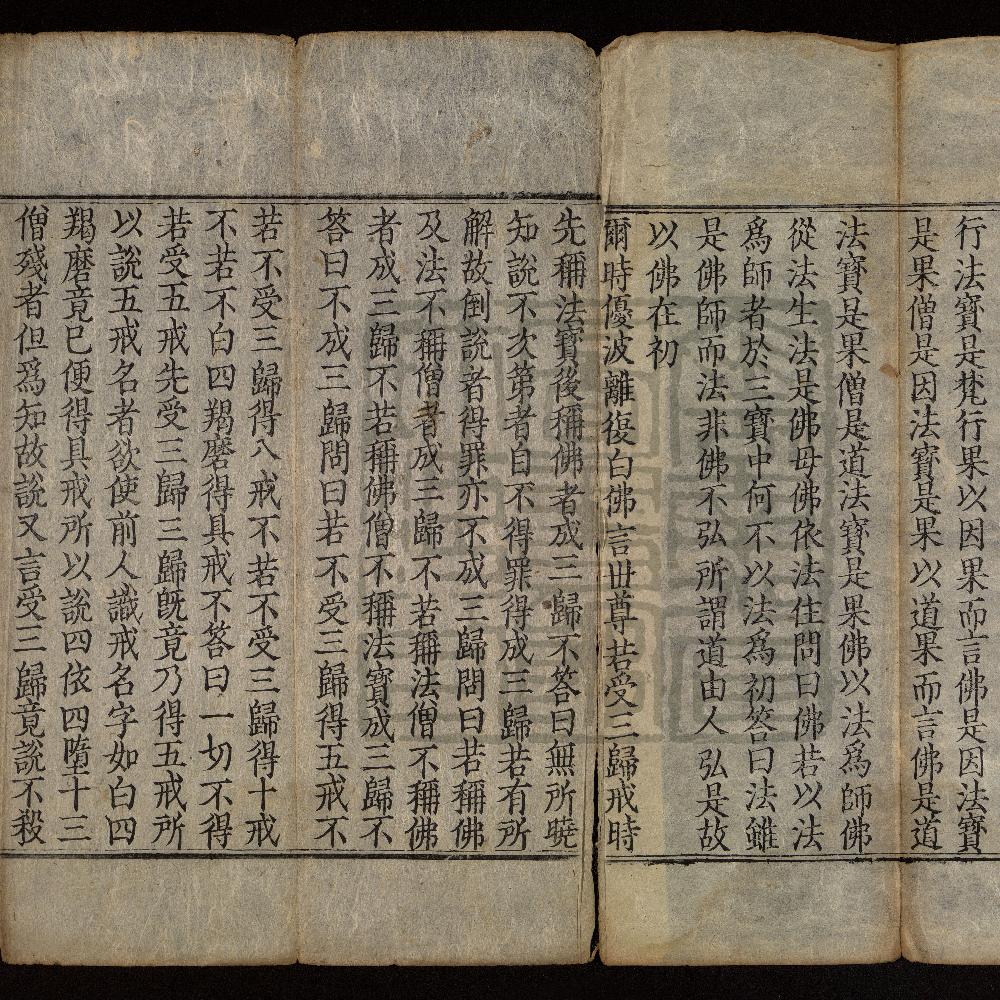 行法寶是梵行果以因果而言佛是因法寶
是果僧是因法寶是果以道果而言佛是道
法寶是果僧是道法寶是果佛以法爲師佛
從法生法是佛母佛依法住問曰佛若以法
爲師者於三寶中何不以法爲初答曰法雖
是佛師而法非佛不弘所謂道由人弘是故
以佛在初
爾時優波離復白佛言世尊若受三歸戒時
先稱法寶後稱佛者成三歸不答曰無所曉
知說不次第者自不得罪得成三歸若有所
解故倒說者得罪亦不成三歸問曰若稱佛
及法不稱僧者成三歸不若稱法僧不稱佛
者成三歸不若稱佛僧不稱法寶成三歸不
答曰不成三歸問曰若不受三歸得五戒不
若不受三歸得八戒不若不受三歸得十戒
不若不白四羯磨得具戒不答曰一切不得
若受五戒先受三歸三歸旣竟乃得五戒所
以說五戒名者欲使前人識戒名字如白四
羯磨竟已便得具戒所以說四依四墮十三
僧殘者但爲知故說又言受三歸竟說不殺